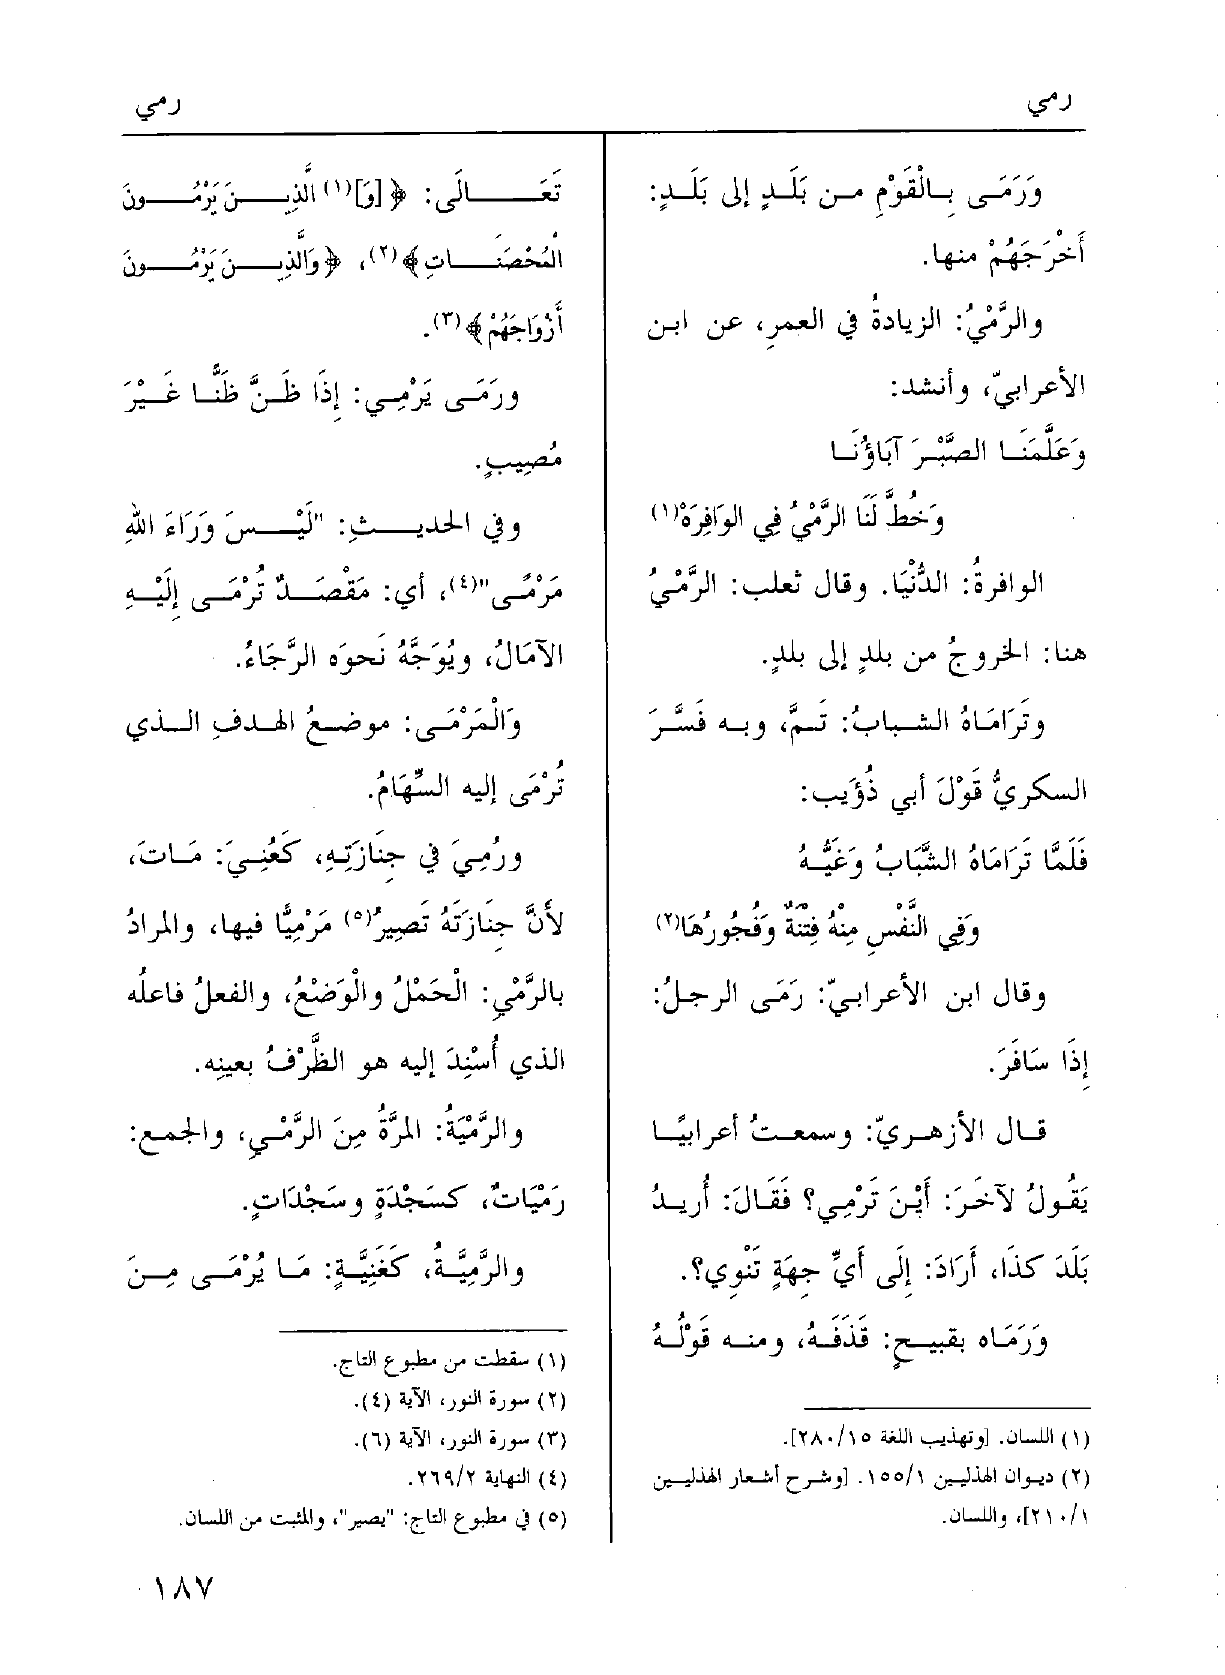 رمي
رمي
وَرَمَى بِالْقَوْمِ من بَلَدٍ إلى بَلَدٍ:
أَخْرَجَهُمْ منها.
والرَّمْيُ: الزيادةُ في العمرِ، عن ابن
الأعرابيّ، وأنشد:
وَعَلَّمَنَا الصَّبْرَ آبَاؤُنَا
وَخُطَّ لَنَا الرَّمْيُ فِي الوَافِرَهْ(١)
الوافرةُ: الدُّنْيَا. وقال ثعلب: الرَّمْيُ
هنا: الخروجُ من بلدٍ إلى بلدٍ.
وتَرَامَاهُ الشبابُ: تَمَّ، وبه فَسَّرَ
السكريُّ قَوْلَ أبي ذُؤَيب:
فَلَمَّا تَرَامَاهُ الشَّبَابُ وَغَيُّهُ
وَفِي النَّفْسِ مِنْهُ فِتْنَةٌ وَفُجُورُهَا(٢)
وقال ابن الأعرابيّ: رَمَى الرجلُ:
إِذَا سَافَرَ.
قال الأزهريّ: وسمعتُ أعرابيًّا
يَقُولُ لآخَرَ: أَيْنَ تَرْمِي؟ فَقَالَ: أُريدُ
بَلَدَ كذَا، أَرَادَ: إِلَى أَيِّ جِهَةٍ تَنْوِي؟.
وَرَمَاه بقبيحٍ: قَذَفَهُ، ومنه قَوْلُهُ
(١) اللسان. [وتهذيب اللغة ٢٨٠/١٥].
(٢) ديوان الهذليين ١٥٥/١. [وشرح أشعار الهذليين
٢١٠/١]، واللسان.
تَعَالَى: ﴿[وَ](١) الَّذِينَ يَرْمُونَ
الْمُحْصَنَاتِ﴾(٢)، ﴿وَالَّذِينَ يَرْمُونَ
أَزْوَاجَهُمْ﴾(٣).
ورَمَى يَرْمِي: إِذَا ظَنَّ ظَنًّا غَيْرَ
مُصِيبٍ.
وفي الحديثِ: "لَيْسَ وَرَاءَ اللهِ
مَرْمًى"(٤)، أي: مَقْصَدٌ تُرْمَى إِلَيْهِ
الآمَالُ، ويُوَجَّهُ نَحوَه الرَّجَاءُ.
وَالْمَرْمَى: موضعُ الهدفِ الذي
تُرْمَى إليه السِّهَامُ.
ورُمِيَ في جِنازَتِهِ، كَعُنِيَ: مَاتَ،
لأَنَّ جِنازَتَهُ تَصِيرُ(٥) مَرْمِيًّا فيها، والمرادُ
بالرَّمْيِ: الْحَمْلُ والْوَضْعُ، والفعلُ فاعلُه
الذي أُسْنِدَ إليه هو الظَّرْفُ بعينِه.
والرَّمْيَةُ: المَرَّةُ مِنَ الرَّمْيِ، والجمع:
رَمْيَاتٌ، كسَجْدَةٍ وسَجْدَاتٍ.
والرَّمِيَّةُ، كَغَنِيَّةٍ: مَا يُرْمَى مِنَ
(١) سقطت من مطبوع التاج.
(٢) سورة النور، الآية (٤).
(٣) سورة النور، الآية (٦).
(٤) النهاية ٢٦٩/٢.
(٥) في مطبوع التاج: "يصير"، والمثبت من اللسان.
١٨٧